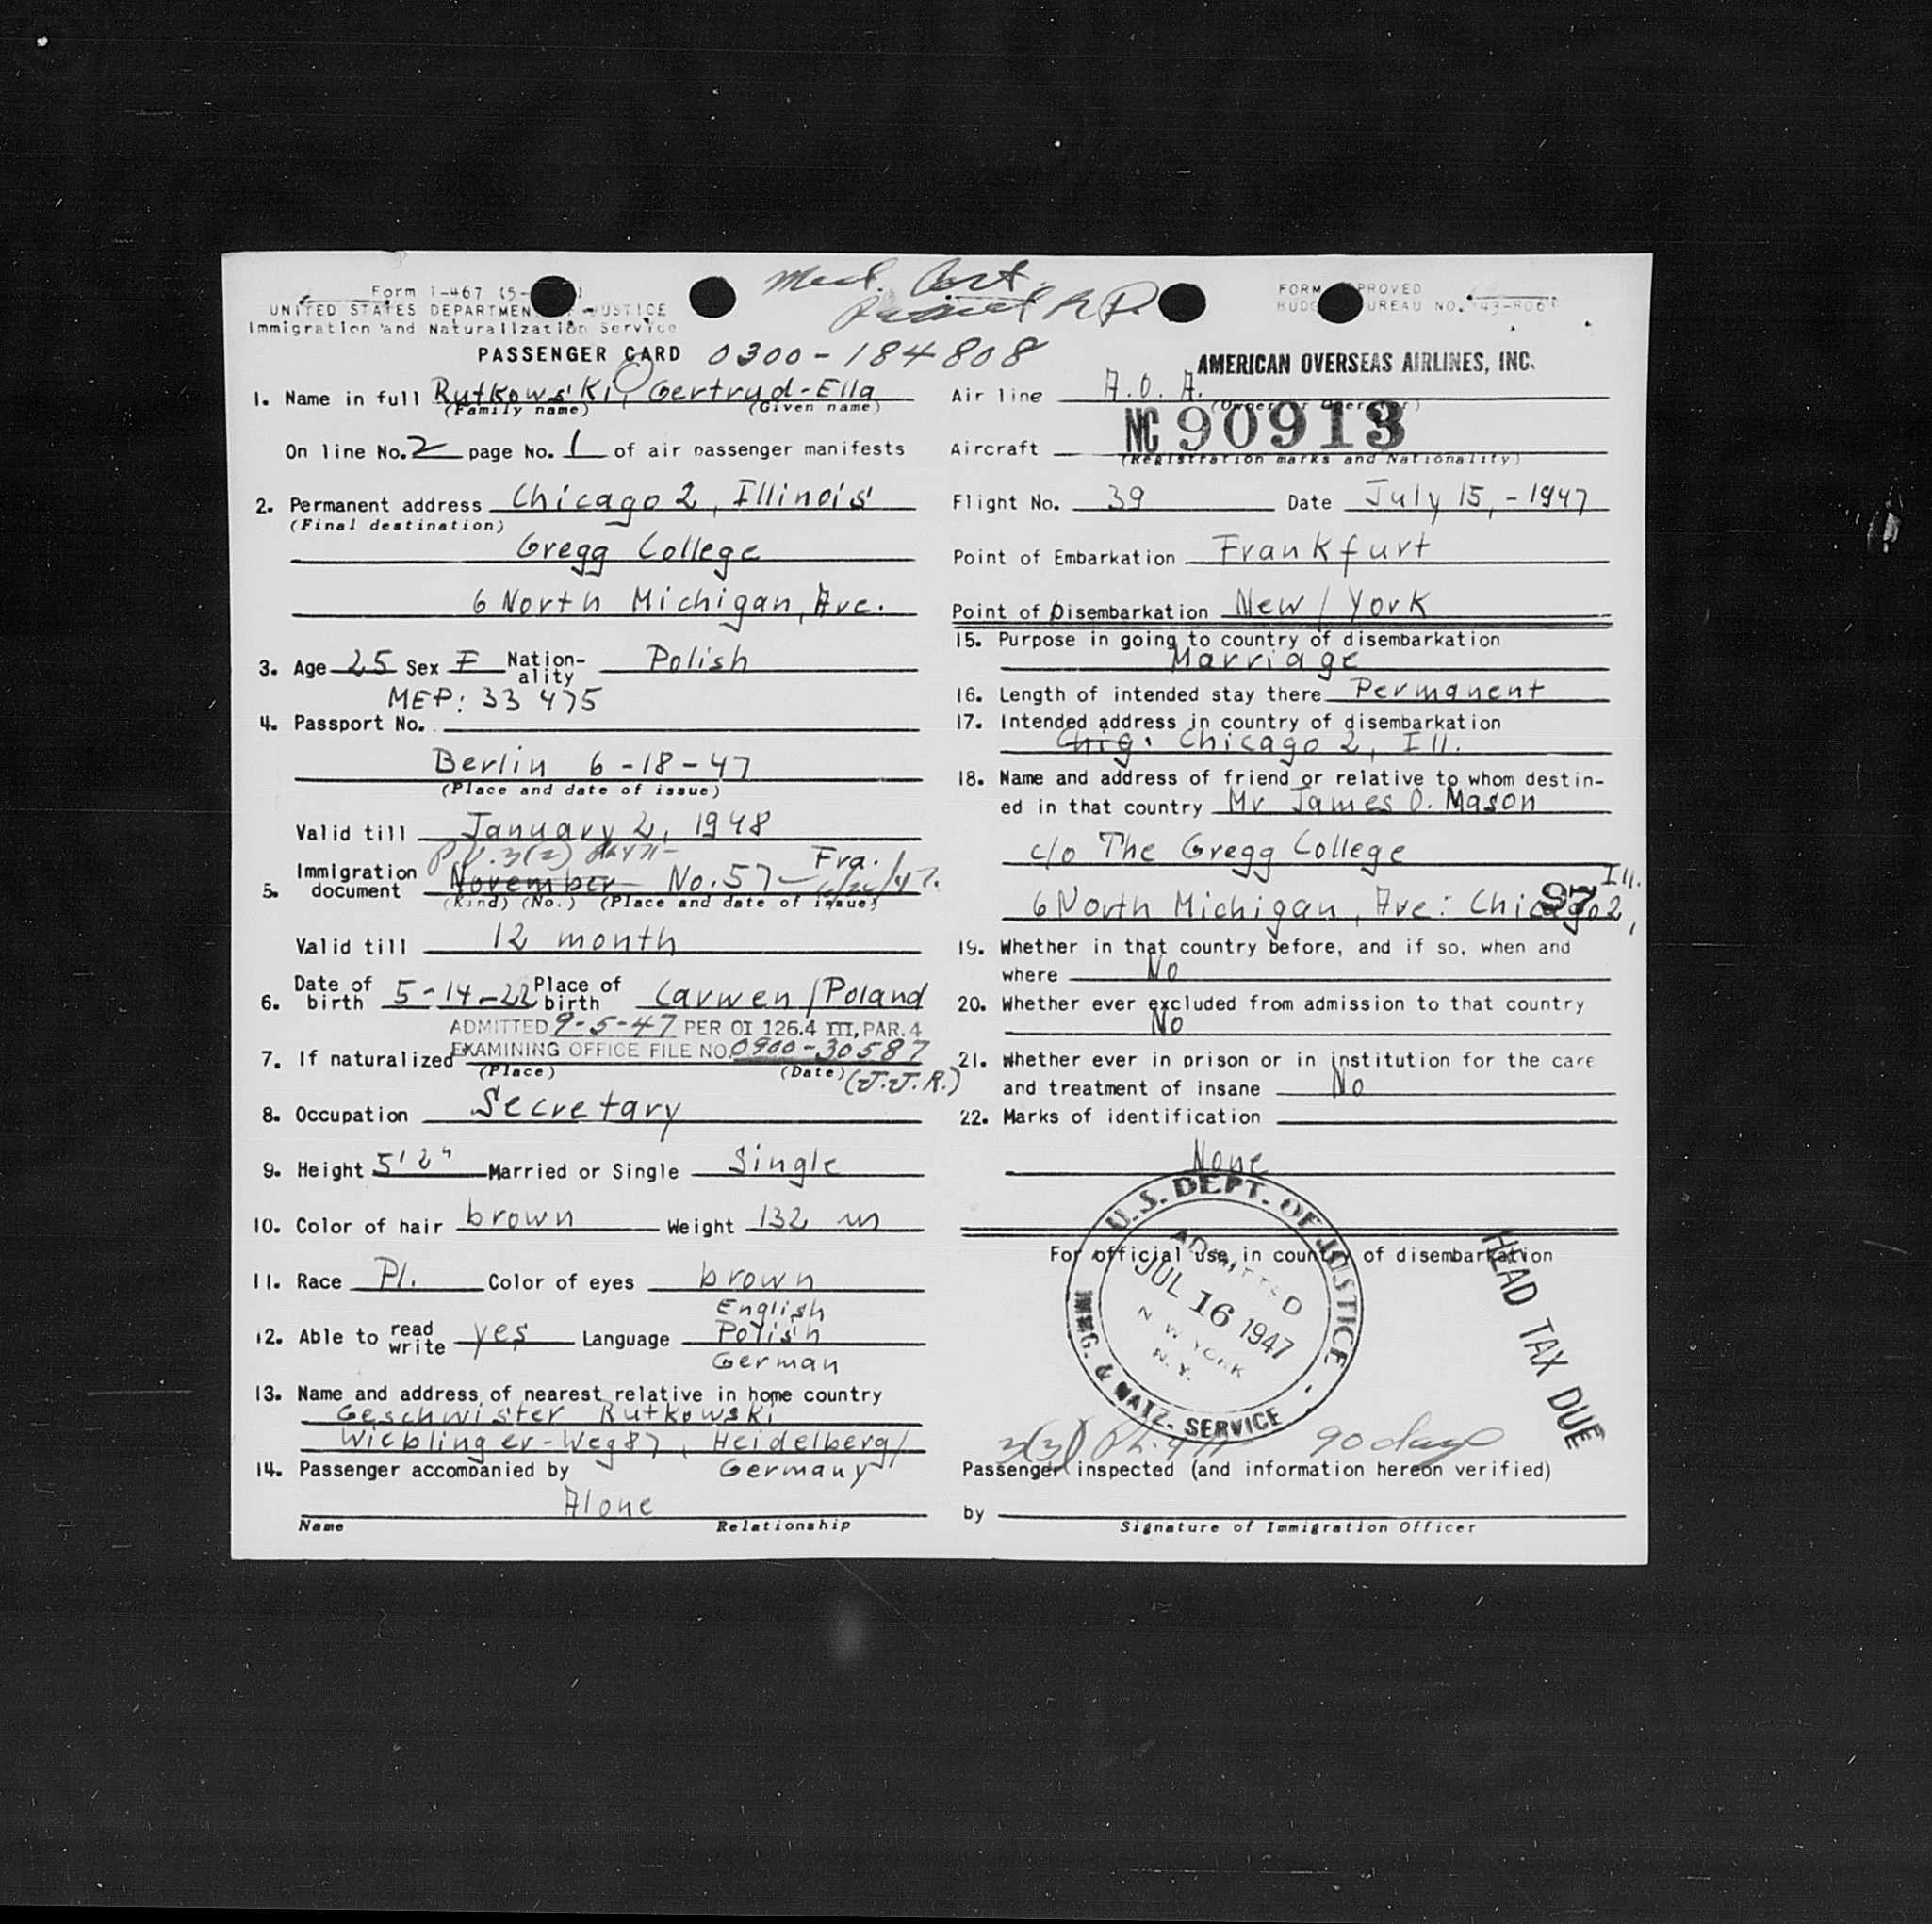 Med. Cert.
Form I-467 (5-
UNITED STATES DEPARTMEN USTICE
Immigration and Naturalization Service
FORM PROVED
BUDG UREAU NO. 43-R061
PASSENGER CARD 0300-184808
AMERICAN OVERSEAS AIRLINES, INC.
1. Name in full Rutkowski, Gertrud-Ella
(Family name) (Given name)
On line No. 2 page No. 1 of air passenger manifests
2. Permanent address Chicago 2, Illinois
(Final destination)
Gregg College
6 North Michigan, Ave.
3. Age 25 Sex F Nation-ality Polish
MEP: 33 475
4. Passport No.
Berlin 6-18-47
(Place and date of issue)
Valid till January 2, 1948
5. Immigration document November No. 57 - Fra.
(Kind) (No.) (Place and date of issue)
Valid till 12 month
6. Date of birth 5-14-22 Place of birth Carwen/Poland
ADMITTED 9-5-47 PER OI 126.4 III, PAR. 4
EXAMINING OFFICE FILE NO. 0900-30587
7. If naturalized
(Place) (Date) (J.J.R.)
8. Occupation Secretary
9. Height 5'2" Married or Single Single
10. Color of hair brown Weight 132
11. Race Pl. Color of eyes brown
English
12. Able to read write yes Language Polish
German
13. Name and address of nearest relative in home country
Geschwister Rutkowski
Wieblinger-Weg 87, Heidelberg/
Germany
14. Passenger accompanied by
Alone
Name Relationship
Air line A.O.A.
(Owner or Operator)
Aircraft NC 90913
(Registration marks and Nationality)
Flight No. 39 Date July 15,-1947
Point of Embarkation Frankfurt
Point of Disembarkation New/York
15. Purpose in going to country of disembarkation
Marriage
16. Length of intended stay there Permanent
17. Intended address in country of disembarkation
Chig. Chicago 2, Ill.
18. Name and address of friend or relative to whom destin-
ed in that country Mr James O. Mason
c/o The Gregg College
6 North Michigan, Ave: Chicago 2, Ill.
97
19. Whether in that country before, and if so, when and
where No
20. Whether ever excluded from admission to that country
No
21. Whether ever in prison or in institution for the care
and treatment of insane No
22. Marks of identification
None
For official use in country of disembarkation
U.S. DEPT. OF JUSTICE
ADMITTED
JUL 16 1947
N W YORK
N.Y.
IMMG. & NATZ. SERVICE
HEAD TAX DUE
3(3) 90 days
Passenger inspected (and information hereon verified)
by
Signature of Immigration Officer